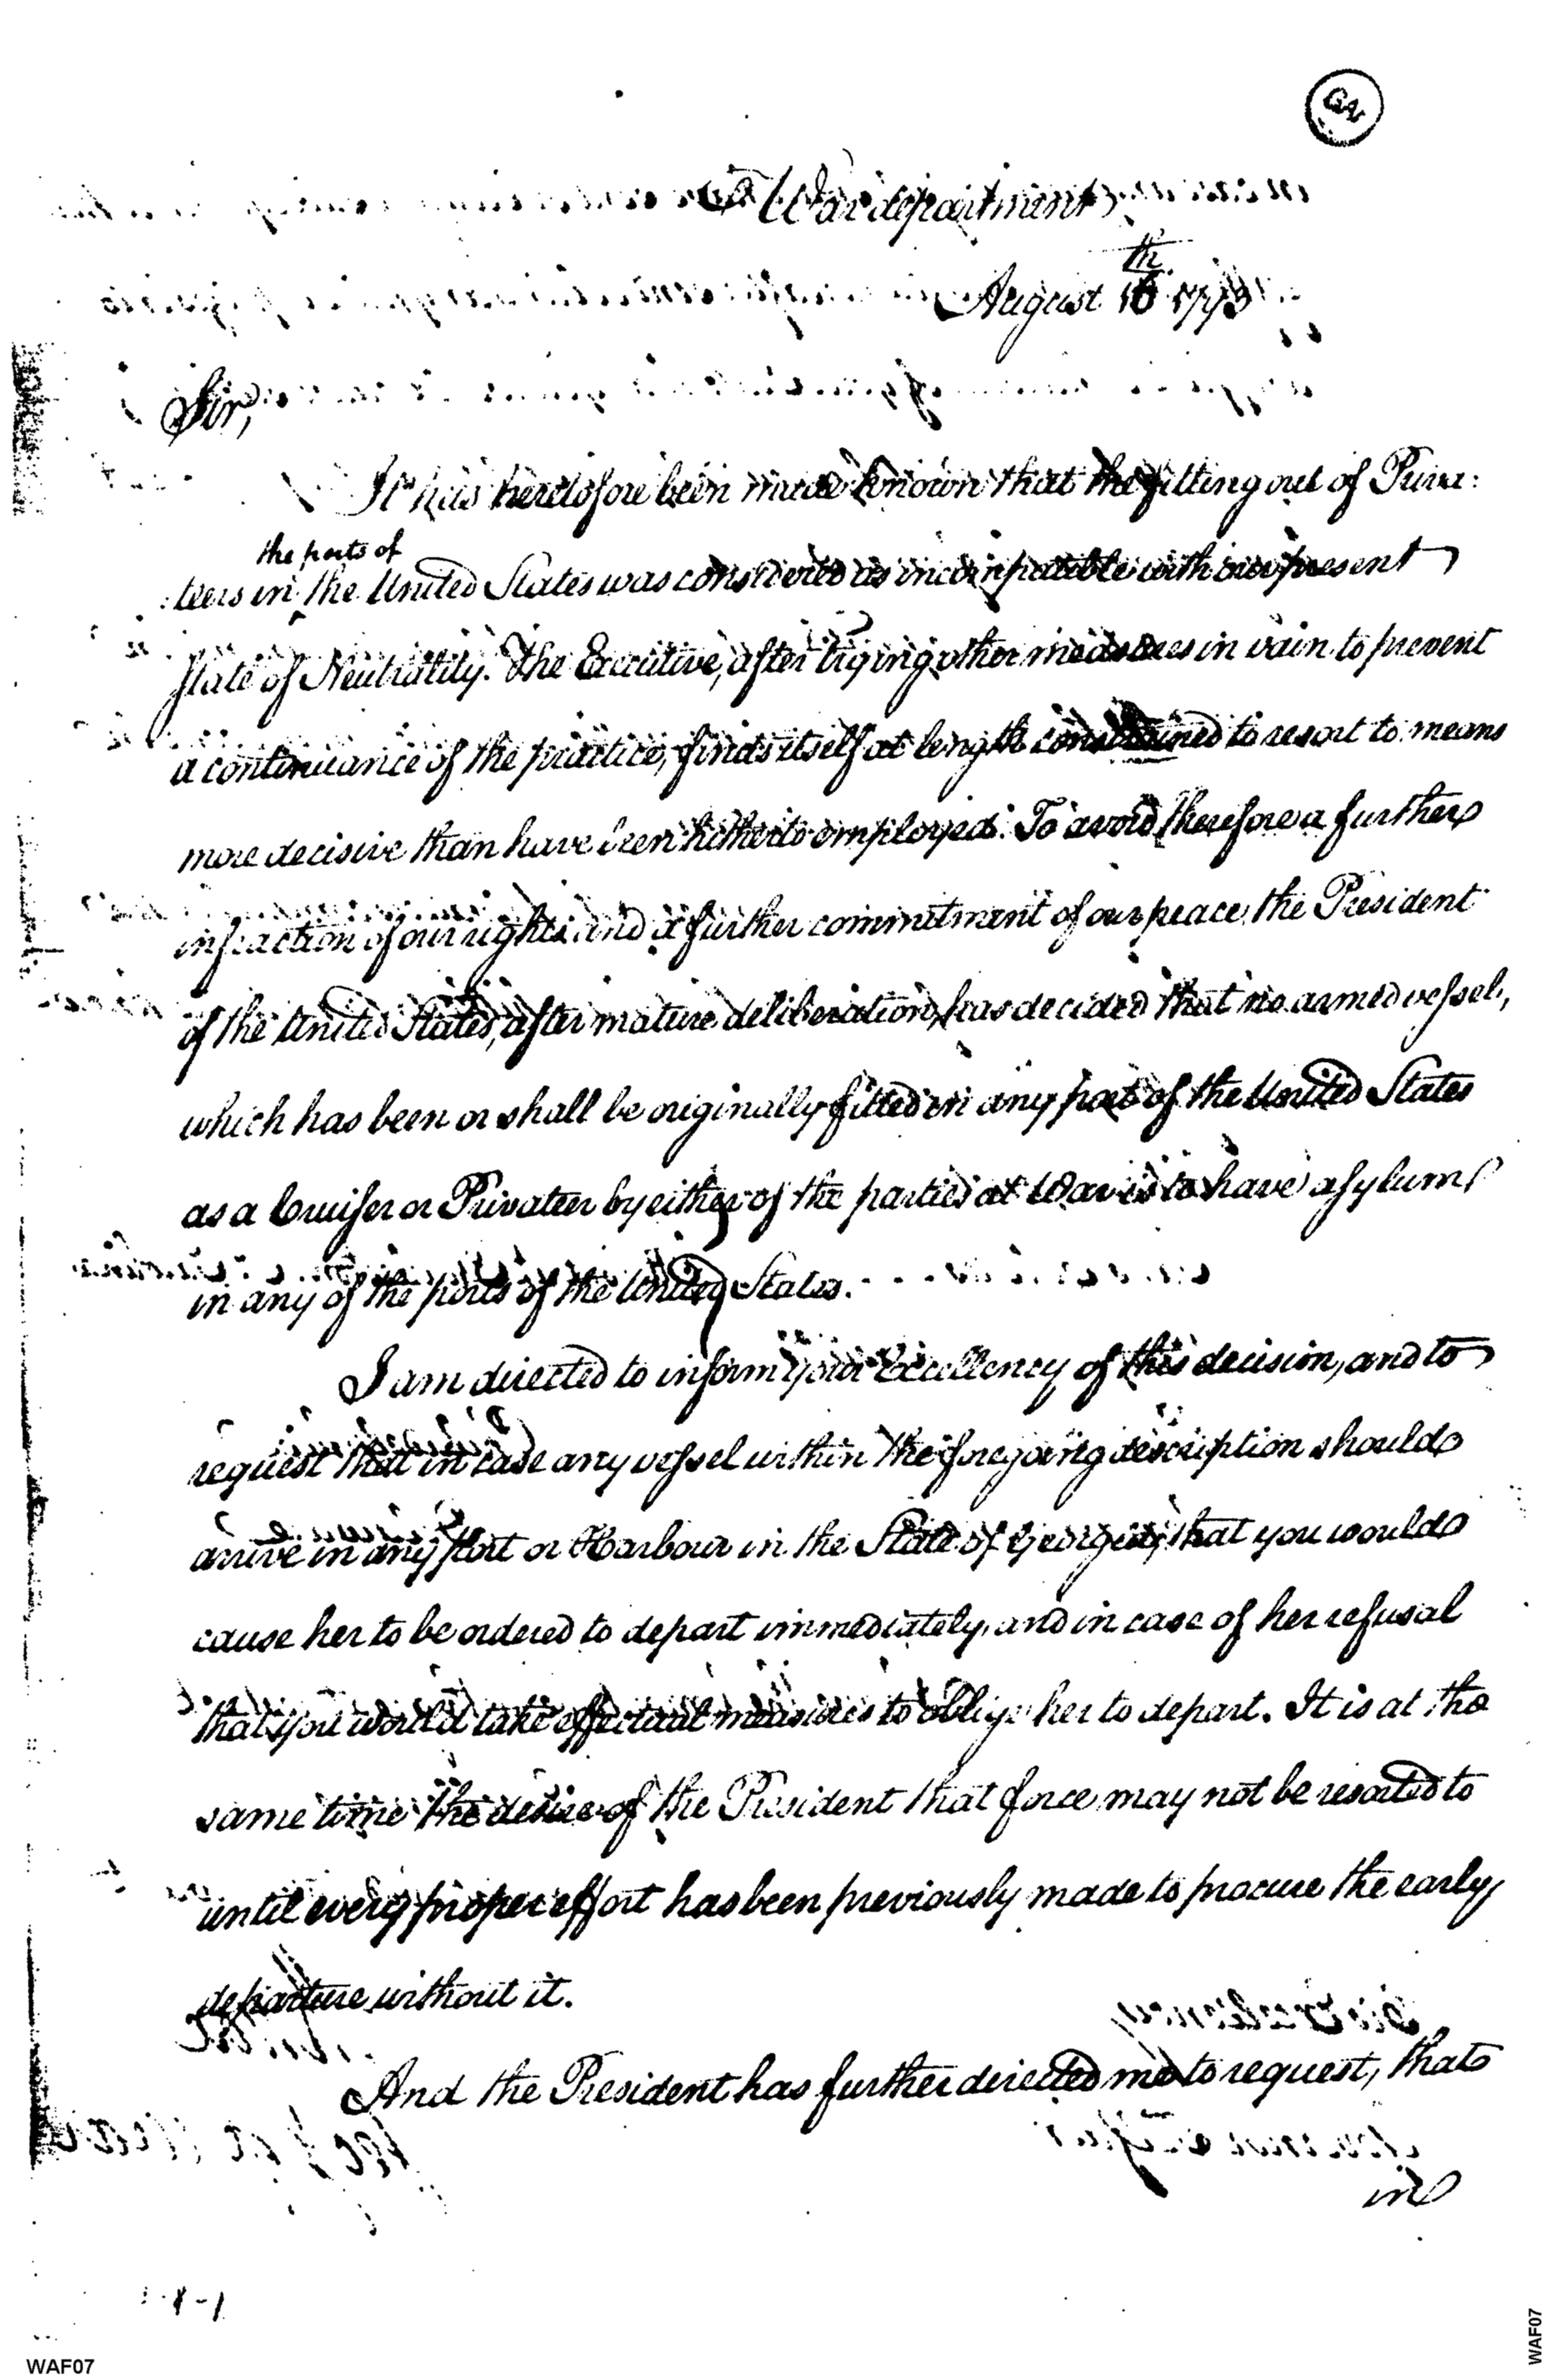 GA
War department
August 16th 1793
Sir,
It has heretofore been made known that the fitting out of Priva:
the ports of
:teers in the United States was considered as incompatible with our present
state of Neutrality. The Executive, after trying other measures in vain to prevent
a continuance of the practice, finds itself at length constrained to resort to means
more decisive than have been hitherto employed. To avoid therefore a further
infraction of our rights and a further commitment of our peace, the President
of the United States, after mature deliberation, has decided that no armed vessel,
which has been or shall be originally fitted in any port of the United States
as a Cruiser or Privateer by either of the parties at War is to have asylum
in any of the ports of the United States.
I am directed to inform your Excellency of this decision, and to
request that in case any vessel within the foregoing description should
arrive in any Port or Harbour in the State of Georgia, that you would
cause her to be ordered to depart immediately, and in case of her refusal
that you would take effectual measures to oblige her to depart. It is at the
same time the desire of the President that force may not be resorted to
until every proper effort has been previously made to procure the early
departure without it.
And the President has further directed me to request, that
in
WAF07
WAF07